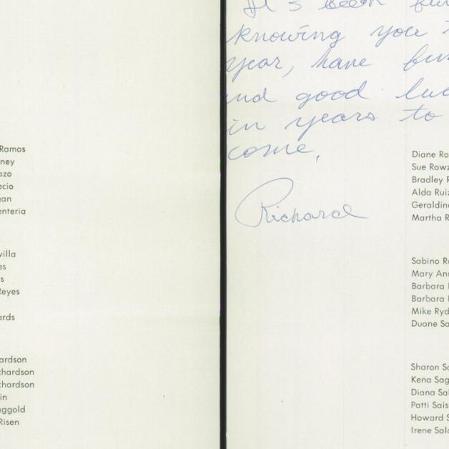 Ramos
ney
ozo
ecio
an
enteria
villa
es
s
Reyes
erds
ardson
chardson
chardson
in
aggold
Risen
It's been fun
knowing you
year, have fun
and good luc
in years to
come,
Richard
Diane Ro
Sue Rowz
Bradley R
Alda Ruiz
Geraldin
Martha R
Sabino R
Mary Ann
Barbara
Barbara
Mike Ryd
Duane Sa
Sharon Sa
Kena Sag
Diana Sal
Patti Sais
Howard S
Irene Sala